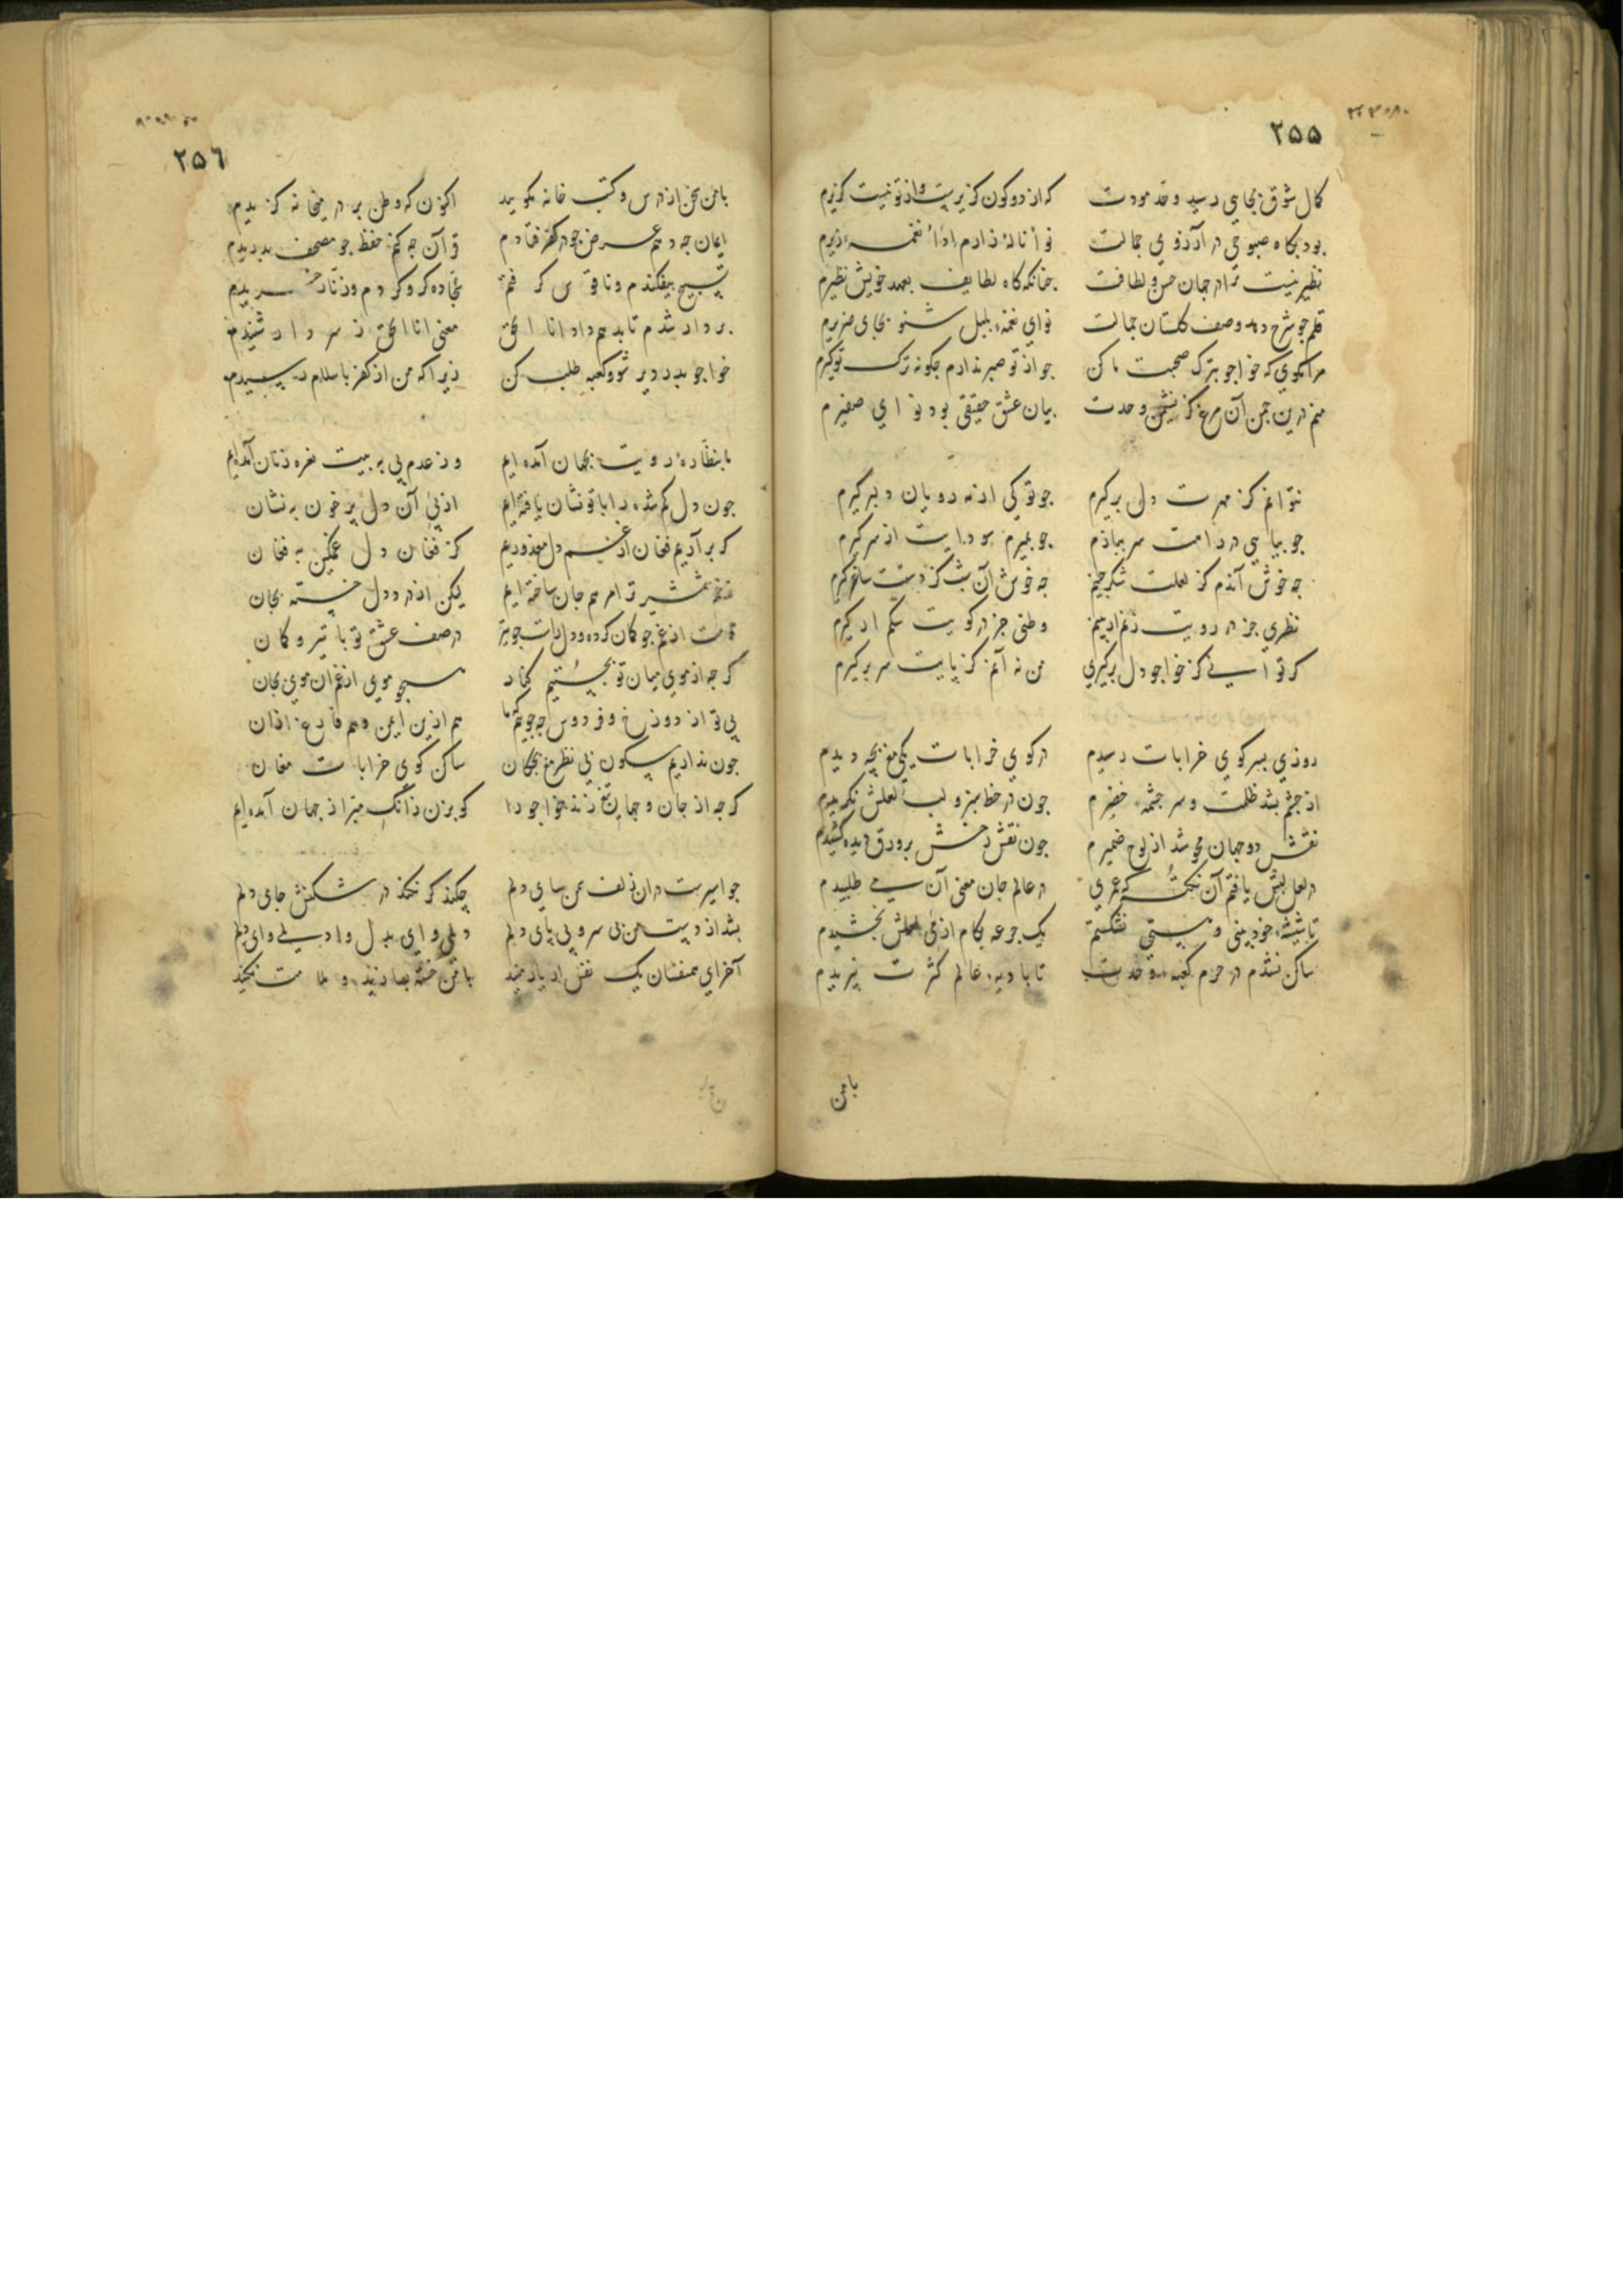 ۲۵۵
کمال شوق بجایی رسید و حد مودت که از دو کون گزیرست و از تو نیست گزیرم
بود بگاه صبوحی در آرزوی جمالت نوا ناله زارم اداء نغمه زیرم
نظیر نیست ترا در جهان حسن و لطافت چنانکه گاه لطایف بعهد خویش نظیرم
قلم چو شرح دهد وصف گلستان جمالت نوای نغمه بلبل شنو بجای صریرم
مرا مگوی که خواجو بترک صحبت ما کن چو از تو صبر ندارم چگونه ترک تو گیرم
منم درین چمن آن مرغ کز نشیمن وحدت بیان عشق حقیقی بود نوای صفیرم
نتوانم کز مهرت دل برگیرم چو تو کی از مه رویان دلبر گیرم
چو بیایی در دامت سر بیازم چو بمیرم سودایت از سر گیرم
چه خوش آندم کز لعلت شکر چینم چه خوش آن شب کز دستت ساغر گیرم
نظری جز در رویت نتوانم وطنی جز در کویت
گر توانی کز خواجو دل برگیری من نه آنم کز پایت سر برگیرم
روزی بسر کوی خرابات رسیدم در کوی خرابات یکی مغبچه دیدم
از چشم بشد ظلمت و سرچشمه خضرم چون در خط سبز و لب لعلش نگریدم
نقش دو جهان محو شد از لوح ضمیرم چون نقش رخش بر ورق دیده کشیدم
در لعل لبش یافتم آن نکته که عمری در عالم جان معنی آن می طلبیدم
تا شیشه خودبینی و هستی نشکستم یک جرعه بکام از می لعلش نچشیدم
ساکن نشدم در حرم کعبه وحدت تا بادیه عالم کثرت نبریدم
با من
۲۵۶
با من سخن از درس و کتب خانه مگویید اکنون که وطن بر در میخانه گزیدم
ایمان چه دهم عرض چو در کفر فتادم قرآن چه کنم حفظ چو مصحف بدریدم
تسبیح بیفکندم و ناقوس گرفتم سجاده گرو کردم و زنار خریدم
بر دار شدم تا بدهم داد انا الحق معنی انا الحق ز سر دار شنیدم
خواجو بدر دیر شو و کعبه طلب کن زیرا که من از کفر باسلام رسیدم
ما بنظاره رویت بجهان آمده ایم وز عدم پی به پیت نعره زنان آمده‌ایم
چون دل گم شده را با تو نشان یافته‌ایم از پی آن دل پر خون به نشان
گر بر آریم فغان از غم دل معذوریم کز فغان دل غمگین به فغان
همه جان ساخته ایم لیکن از درد دل خسته بجان
قامت از غم چو کمان کرده و در صف عشق تو با تیر و کمان
گر چه از موی میان تو بجستیم کنار همچو موی از غم آن موی میان
بی تو از دوزخ و فردوس چه جوییم هم ازین ایمن و هم فارغ از آن
چون نداریم سکون بی نظر مغبچگان ساکن کوی خرابات مغان
گر چه از جان و جهان زنند خواجو را کو بزن زانک مبرا ز جهان آمده ایم
چو اسیرست در آن زلف سمن سای دلم چکند گر نکند در شکنش جای دلم
بشد از دست من بی سر و بی پای دلم دلم وای بدل وا دلم وای دلم
آخر ای همنفسان یک نفس از یار با من خسته بسازید و ملامت نکنید